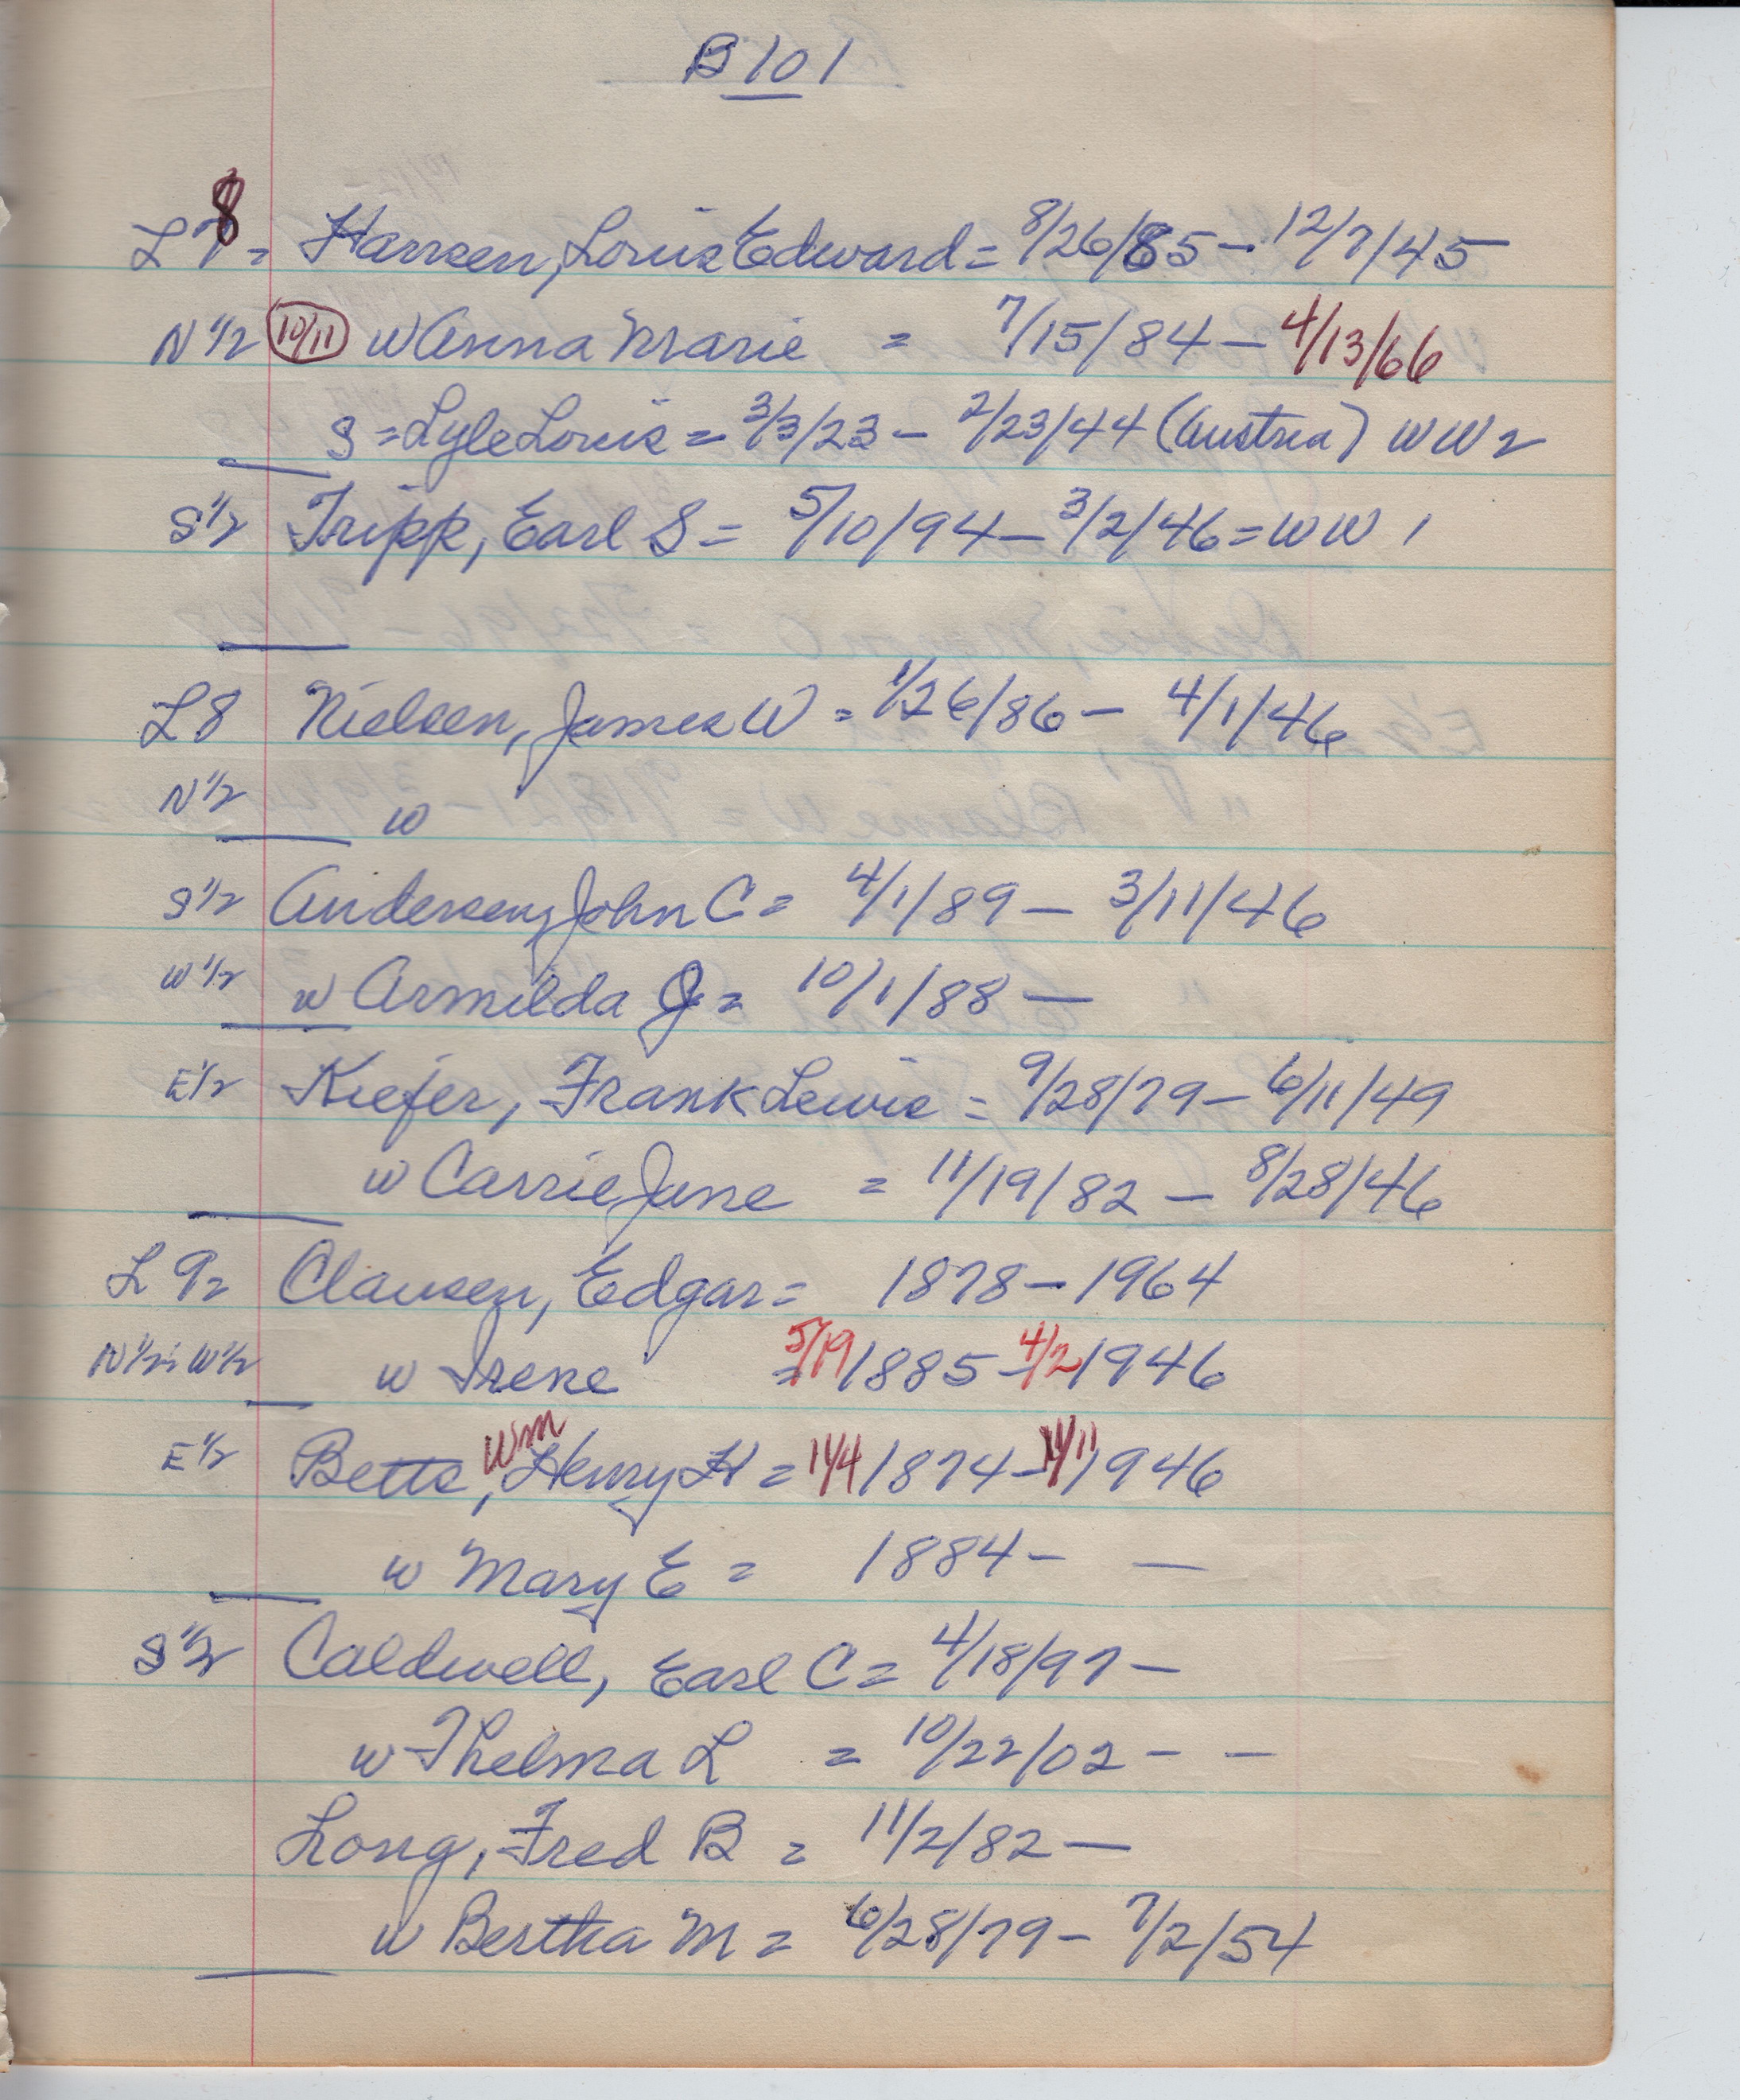 B 101
L 8 = Hansen, Louis Edward = 8/26/85 - 12/7/45
N 1/2 10/11 w Anna Marie = 7/15/84 - 4/13/66
S = Lyle Louis = 3/3/23 - 2/23/44 (Austria) WW2
S 1/2 Tripp, Earl S = 5/10/94 - 3/2/46 = WW 1
L8 Nielsen, James W = 1/26/86 - 4/1/46
N 1/2 w
S 1/2 Andersen, John C = 4/1/89 - 3/11/46
W 1/2 w Armilda J = 10/1/88 -
E 1/2 Kiefer, Frank Lewis = 9/28/79 - 6/11/49
w Carrie Jane = 11/19/82 - 8/28/46
L 9 = Clausen, Edgar = 1878 - 1964
N 1/2 W 1/2 w Irene = 5/19 1885 - 4/2 1946
E 1/2 Betts, Wm Henry H = 11/4 1874 - 1946
w Mary E = 1884 - -
S 1/2 Caldwell, Earl C = 4/18/97 -
w Thelma L = 10/22/02 - -
Long, Fred B = 11/2/82 -
w Bertha M = 6/28/79 - 7/2/54